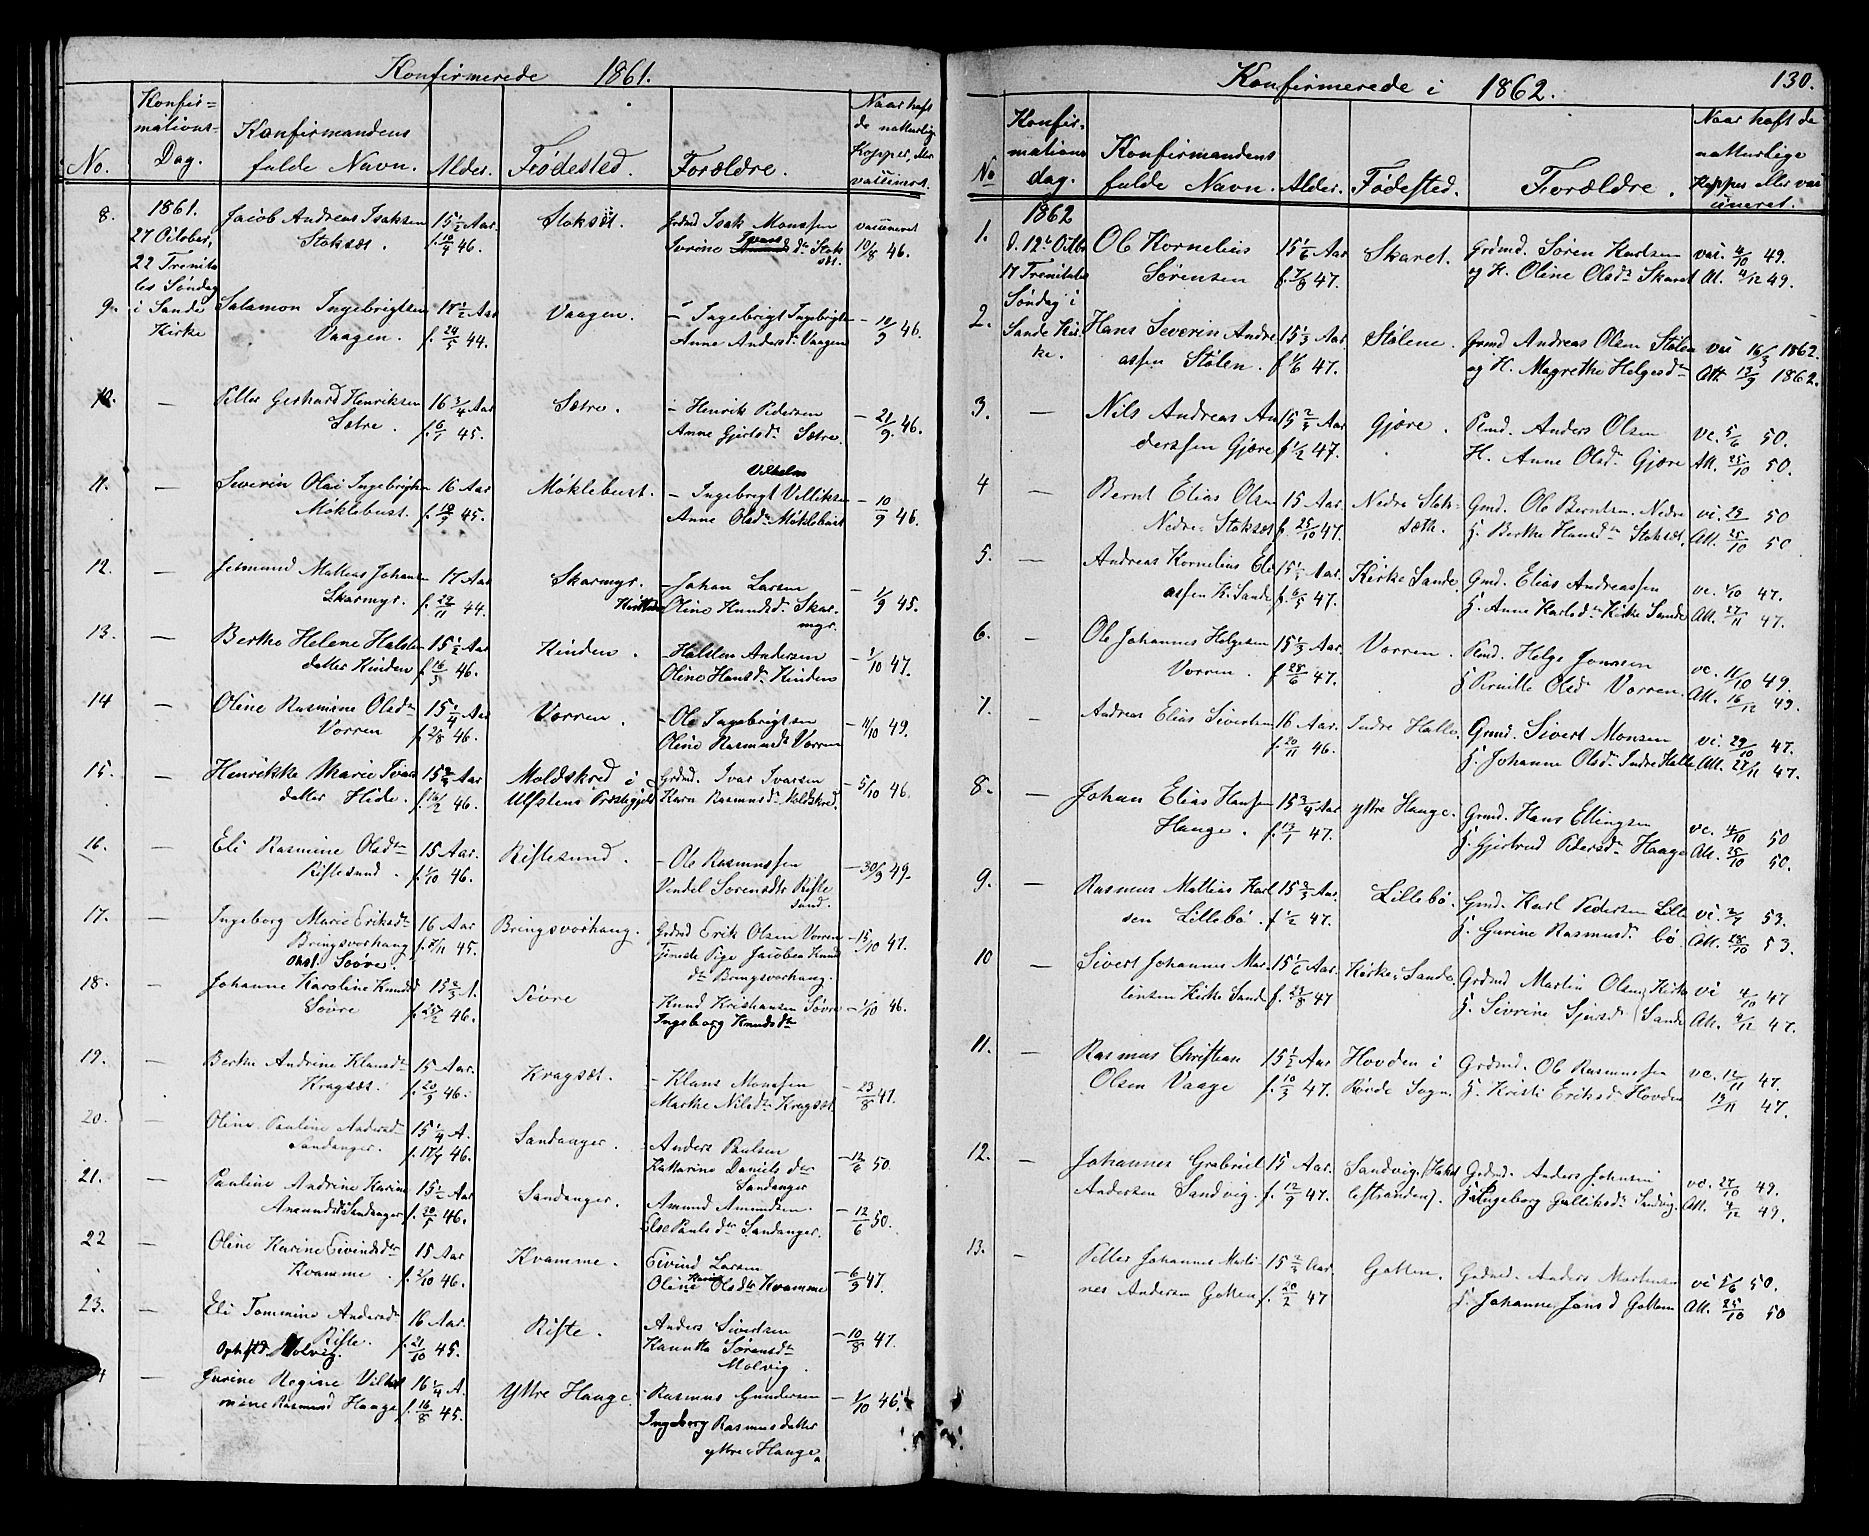 Konfirmerede 1861.
No.
Konfir=
mations=
Dag.
Konfirmandens
fulde Navn.
Alder.
Fødested.
Forældre.
Naar haft
de natturlige
Kopper, eller
vassineret.
8.
1861.
27 October,
22 Trenita
tis Søndag
i Sande
Kirke
Jacob Andreas Isaksen
Stoksæt.
15 1/2 Aar
f. 10/9 46.
Stoksæt.
Grdmd Isak Monssen
Sverine Ivars dr Stok
sæt.
vassineret
10/8 46.
9.
Salamon Ingebrigtsen
Vaagen.
17 1/2 Aar
f. 24/5 44.
Vaagen.
- Ingebrigt Ingebrigtsen
Anne Andersdr Vaagen
- 10/9 46.
10.
—
Petter Gerhard Henriksen
Sætre.
16 3/4 Aar
f. 6/1 45.
Sætre.
- Henrik Pedersen
Anne Gjertsdr Sætre.
- 21/9 46.
11.
—
Severin Olai Ingebrigtsen
Møklebust.
16 Aar
f. 18/9 45.
Møklebust.
Vilhelm
- Ingebrigt Villiksen
Anne Olsdr Møklebust
- 10/9 46.
12.
—
Jetmund Mathias Johans
Skarmyr.
17 Aar
f. 22/11 44.
Skarmyr.
- Johan Larsen
Oline Knudsdr Skar
myr.
- 1/9 45.
13.
—
Berthe Helene Halsten
datter Kinden
15 1/2 Aar
f. 16/5 46.
Kinden.
- Halsten Andersen
Oline Hansdr Kinden
- 1/10 47.
14
—
Oline Rasmine Olsdr
Vorren
15 1/4 Aar
f. 2/8 46.
Vorren.
- Ole Ingebrigtsen
Oline Rasmusdr Vorren
- 11/10 49.
15.
—
Henrikke Marie Ivars
datter Hide.
15 2/3 Aar
f. 16/2 46.
Moldskred i
Ulfstens Præstegjeld
Grdmd. Ivar Ivarsen
Karn Rasmusdr Moldskred.
- 5/10 46.
16.
—
Eli Rasmine Olsdr
Riftesund.
15 Aar.
f. 1/10 46.
Riftesund.
- Ole Rasmussen
Vendel Sorensdtr Rifte
sund.
- 30/9 49.
17.
—
Ingeborg Marie Eriksdr
Bringsvorhang
Søvre.
16 Aar
f. 7/11 45.
Bringsvorhang.
Grdmd Erik Olsen Vorren
Tjeneste Pige Jacobea Knud
dr Bringsvorhang.
- 15/10 47.
18.
—
Johanne Karoline Knudsd
Søvre
15 2/3 A.
f. 27/2 46.
Søvre
- Knud Kristiansen Søvre
Ingeborg Knudsdr
- 1/10 46.
19.
—
Berthe Andrine Klausdr
Kragsæt.
15 Aar.
f. 20/9 46.
Kragsæt.
- Klaus Monssen
Marthe Nilsdr Kragsæt.
- 23/8 47.
20.
—
Oline Pauline Andersdr
Sandanger.
15 1/4 A.
f. 17/7 46.
Sandanger.
- Anders Paulsen
Katharine Daniels dtr
Sandanger
- 12/6 50.
21.
—
Pauline Andrine Karine
Amundsdr Sandanger
15 1/2 Aar
f. 20/5 46.
Sandanger.
Amund Amundsen.
Else Pauls dtr Sandanger.
- 12/6 50.
22
—
Oline Karine Eivindsdtr
Kvamme.
15 Aar
f. 2/10 46.
Kvamme.
Eivind Larsen
Karine
Oline Olsdtr Kvamme
- 6/9 47.
23.
—
Eli Tommine Andersdr
Rifte.
Ophsted. Molvig.
16 Aar.
f. 21/10 45.
Rifte.
Anders Sivertsen
Kanutte Sørensdr
Molvig.
- 10/8 47.
24
—
Gurine Regine Vilhel
mine Rasmusd Hauge
16 1/4 A.
f. 16/8 45.
Yttre Hauge.
Rasmus Gundersen
Ingeborg Rasmusdatter
yttre Hauge
- 1/10 46.
Konfirmerede i 1862.
130.
No
Konfir=
mations
dag.
Konfirmandens
fulde Navn.
Alder.
Fødested.
Forældre.
Naar haft de
natturlige
Kopper eller vas
cineret.
1.
1862
d. 12te Octbr
17 Trenitatis
Søndag i
Sande Kir=
ke.
Ole Kornelius
Sørensen
15 1/6 Aar
f. 7/9 47.
Skaret.
Grdmd. Søren Karlsen
og H. Oline Olsdr Skaret
vac. 4/10 49.
Att. 4/12 49.
2.
Hans Severin Andre
assen Stølen.
15 1/3 Aar.
f. 1/6 47.
Stølene.
Grdmd Andreas Olsen Stølen
og H. Magrethe Helgesdr
vac 16/3 1862.
Att. 13/9 1862.
3.
—
Nils Andreas An
derssen Gjøre
15 2/3 Aar
f. 1/2 47.
Gjøre.
Plmd. Anders Olsen
H. Anne Olsdr Gjøre
vc. 5/6 50.
Att. 25/10 50.
4
—
Bernt Elias Olsen
Nedre Stoksæt
15 Aar.
f. 25/10 47.
Nedre Stok-
sæth.
Gmd. Ole Berntsen. Nedre
H. Berthe Hansdr Stoksæt.
vc. 50
Att. 25/10 50.
5.
—
Andreas Kornelius Eli
assen K. Sande
f. 6/5 47.
Kirke Sande
Gmd. Elias Andreassen
H. Anne Karlsdr Kirke Sande
vc. 1/10 47.
Att. 27/11 47.
6.
—
Ole Johannes Helgesen
Vorren.
15 1/3 Aar.
f. 28/6 47.
Vorren.
Plmd. Helge Jonssen
H. Pernille Olsdr Vorren.
vc. 11/10 49.
Att. 16/12 49.
7.
—
Andreas Elias Sivertsen
16 Aar.
f. 20/11 46.
Indre Halle.
Grmd. Sivert Monsen
H. Johanne Olsdr Indre Halle
vc. 29/10 47.
Att. 27/11 47.
8.
—
Johan Elias Hansen
Hauge.
15 3/4 Aar
f. 13/1 47.
yttre Hauge.
Grmd. Hans Ellingsen
H. Gjertrud Pedersdr Hauge
vc. 4/10 50
Att. 25/10 50.
9.
—
Rasmus Mathias Karl
sen Lillebø.
15 2/3 Aar.
f. 1/2 47.
Lillebø.
Gmd. Karl Pedersen Lille
H. Gurine Rasmusdr bø
vc. 2/9 53.
Att. 28/10 53.
10
—
Sivert Johannes Mar
tinsen Kirke Sande
15 1/6 Aar.
f. 23/8 47
Kirke Sande
Grdmd Martin Olsen Kirke
H. Sivrine Sjursdr Sande
vc 4/10 47
Att. 4/12 47.
11.
—
Rasmus Christian
Olsen Vaage
15 1/2 Aar
f. 10/3 47.
Hovden i
Røvde Sogn.
Grdmd. Ole Rasmussen
H. Kristi Eriksdr Hovden
vc. 12/11 47.
19/11 47.
12.
—
Johannes Grabriel
Andersen Sandvig
15 Aar.
f. 12/9 47.
Sandvig. (Hakal
lestranden).
Grdmd. Anders Johnsen
H. Ingeborg Gulliksdr Sandvig.
vc. 27/10 49.
Att. 4/12 49.
13.
—
Petter Johannes Marti
nes Andersen Gotten
15 2/3 Aar
f. 20/2 47
Gotten.
Grdmd. Anders Martensen
H. Johanne Jonsd Gotten
vc 5/6 50.
Att. 25/10 50